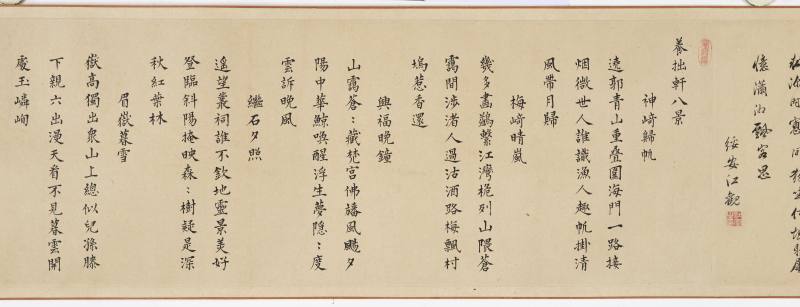 憶瀟湘騷客思
綏安江觀
養拙軒八景
神崎歸帆
遠郭青山重疊圍海門一路接
烟微世人誰識漁人趣帆掛清
風帶月歸
梅崎晴嵐
幾多畫鷁繫江灣桅列山隈蒼
靄間涉渚人過沽酒路梅飄村
塢惹香還
興福晚鐘
山靄蒼〻藏梵宮佛旛風颺夕
陽中華鯨喚醒浮生夢隱〻度
雲訴晚風
繼石夕照
遙望叢祠誰不欽地靈景美好
登臨斜陽掩映森〻樹疑是深
秋紅葉林
眉嶽暮雪
嶽高獨出衆山上總似兒孫膝
下親六出漫天看不見暮雲開
處玉嶙峋